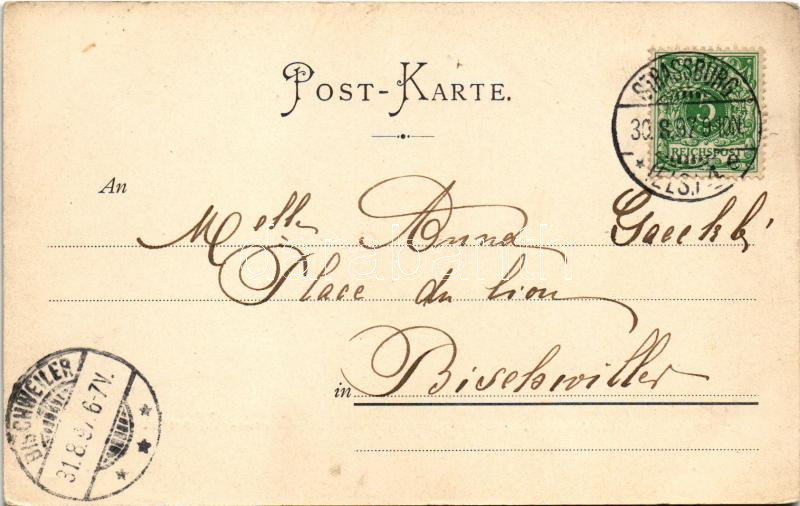 POST-KARTE.
STRASSBURG
30.8.97.
(ELS.)
e
5
REICHSPOST
An
Melle Anna
Place du lion
in Bischwiller
BISCHWEILER
31.8.97. 6-7V.